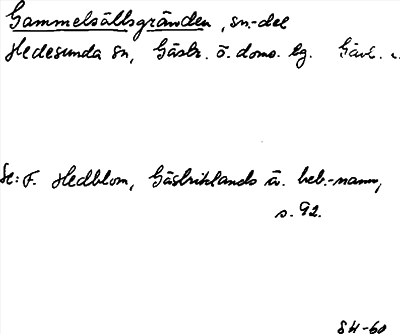 Gammelsällsgränden, sn.-del
Hedesunda sn, Gästr. ö. doms. tg. Gävl.
Se: F. Hedblom, Gästriklands ä. beb.-namn,
s. 92.
SH-60